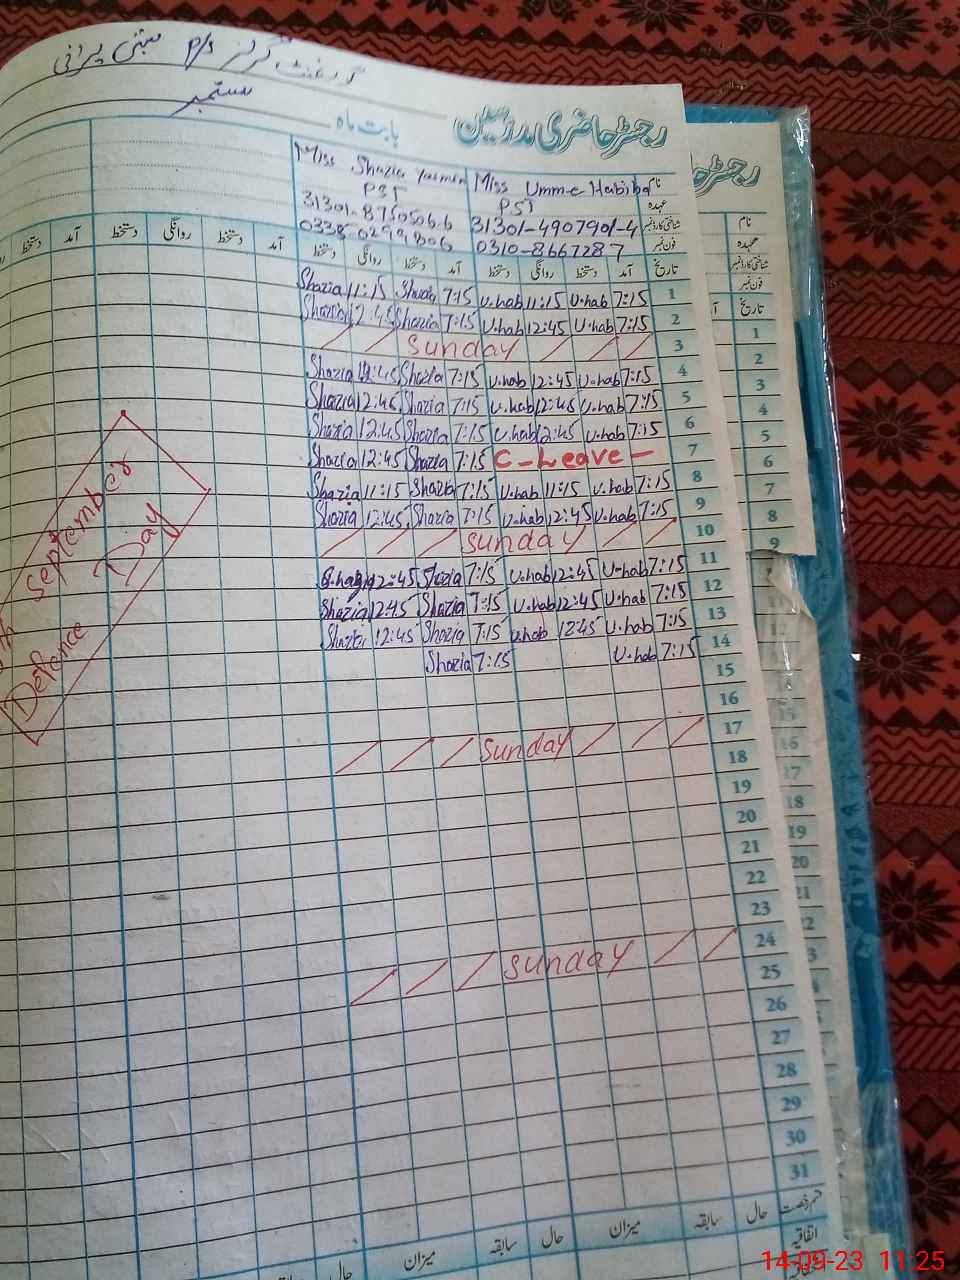 گورنمنٹ گرلز P/S بستی پیرانی
ستمبر
رجسٹر حاضری مدرسین بابت ماہ
رجسٹر حا
نام Miss Umm-e-Habiba Miss Shazia Yasmin
عہدہ PST PST
شناختی کارڈ نمبر 31301-4907901-4 31301-8750506-6
فون نمبر 0310-8667287
تاریخ آمد دستخط روانگی دستخط آمد دستخط روانگی دستخط آمد دستخط روانگی دستخط آمد دستخط
1 7:15 U.hab 11:15 U.hab 7:15 Shazia 11:15 Shazia
2 7:15 U.hab 12:45 U.hab 7:15 Shazia 12:45 Shazia
3 Sunday
4 7:15 U.hab 12:45 U.hab 7:15 Shazia 12:45 Shazia
5 7:15 U.hab 12:45 U.hab 7:15 Shazia 12:45 Shazia
6 7:15 U.hab 12:45 U.hab 7:15 Shazia 12:45 Shazia
7 C-Leave- 7:15 Shazia 12:45 Shazia
8 7:15 U.hab 11:15 U.hab 7:15 Shazia 11:15 Shazia
9 7:15 U.hab 12:45 U.hab 7:15 Shazia 12:45 Shazia
10 Sunday
11 7:15 U-hab 12:45 U.hab 7:15 Shazia 12:45
12 7:15 U-hab 12:45 U.hab 7:15 Shazia 12:45 Shazia
13 7:15 U-hab 12:45 U.hab 7:15 Shazia 12:45 Shazia
14 7:15 U.hab 7:15 Shazia
15
16
17 Sunday
18
19
20
21
22
23
24 Sunday
25
26
27
28
29
30
31
September
Defence Day
قسم رخصت حال سابقہ میزان حال سابقہ میزان حال
اتفاقیہ
نام
عہدہ
شناختی کارڈ نمبر
فون نمبر
تاریخ
1
2
3
4
5
6
7
8
9
16
17
18
19
20
21
14-09-23 11:25